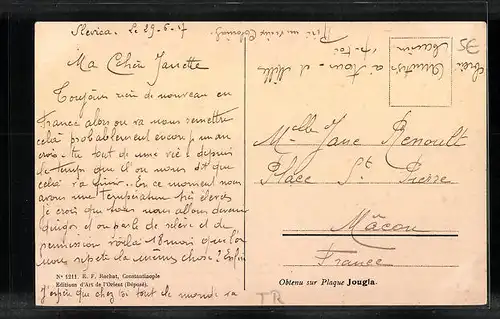 Slevica. Le 29-6-17
Ma Chère Janette
Toujours rien de nouveau en
France alors on va nous remettre
celà probablement encore un an
crois-tu tout de même vie depuis
le temps que l'on nous dit que
celà va finir. En ce moment nous
avons une température très élevée
je crois que nous nous allons devenir
et on parle de relève et de
permission voilà 18 mois que l'on
nous répète la même chose? Enfin
J'espère que chez toi tout le monde va
Nº 1211. E. F. Rochat, Constantinople
Editions d'Art de l'Orient (Déposé).
Melle Jane Renoult
Place St Pierre
Mâcon
France
Obtenu sur Plaque Jougla.
TR
35